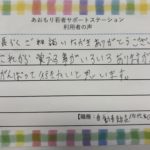 あおもり若者サポートステーション
利用者の声
長らくご相談いただきありがとうござい
これから覚える事がいろいろありますが
がんばって行きたいと思います。